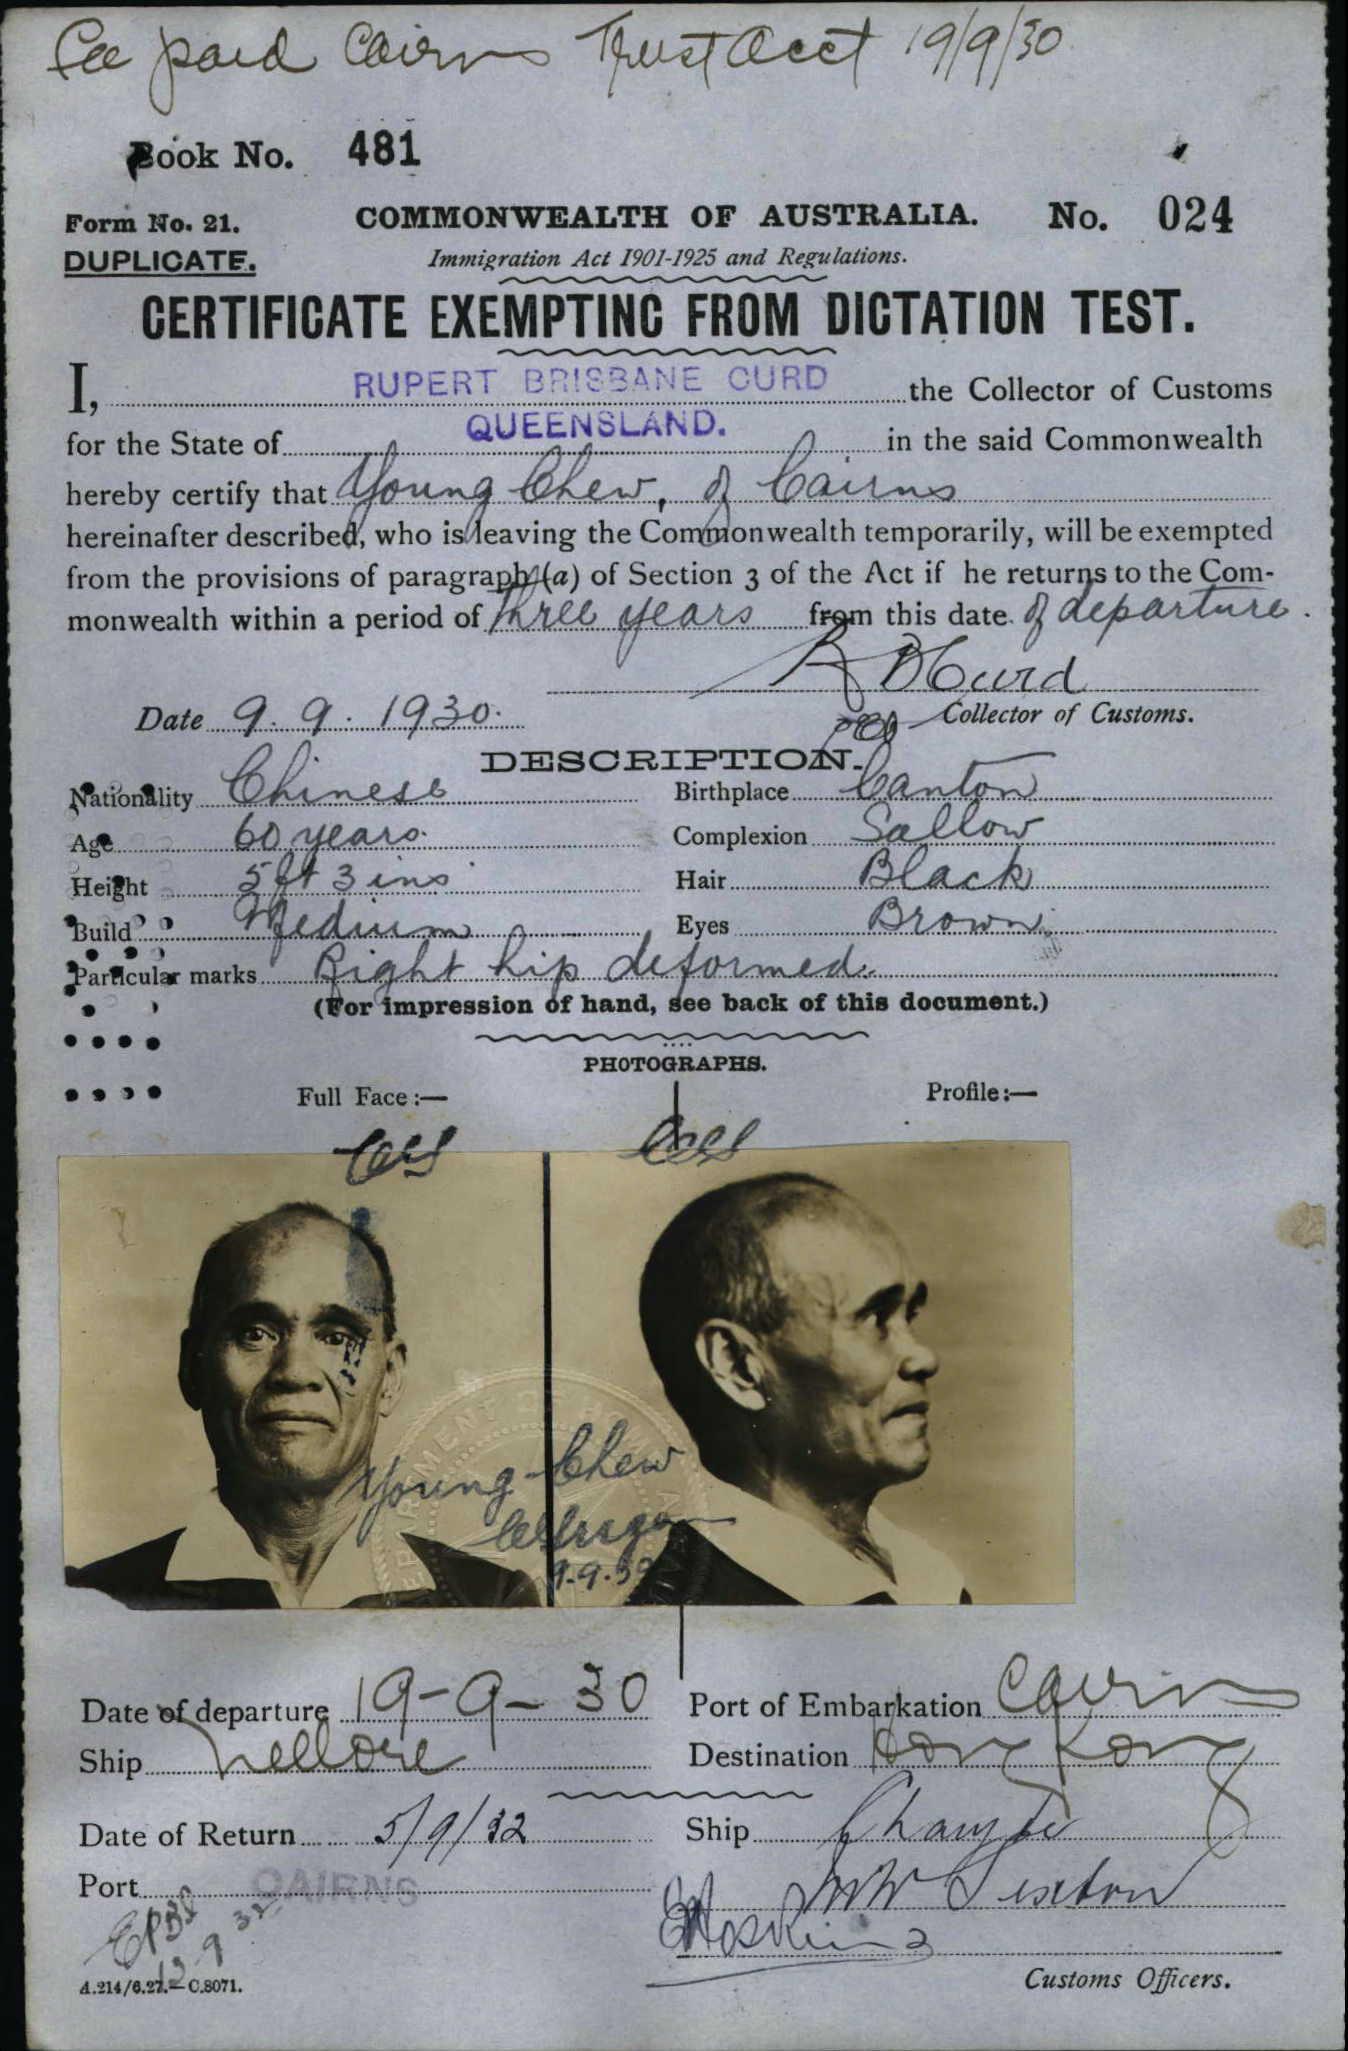 Fee paid Cairns Trust Acct 19/9/30
Book No. 481
Form No. 21. COMMONWEALTH OF AUSTRALIA. No. 024
DUPLICATE. Immigration Act 1901-1925 and Regulations.
CERTIFICATE EXEMPTING FROM DICTATION TEST.
I, RUPERT BRISBANE CURD the Collector of Customs
for the State of QUEENSLAND. in the said Commonwealth
hereby certify that Young Chew, of Cairns
hereinafter described, who is leaving the Commonwealth temporarily, will be exempted
from the provisions of paragraph (a) of Section 3 of the Act if he returns to the Com-
monwealth within a period of three years from this date of departure.
R B Curd
Date 9.9.1930. Collector of Customs.
DESCRIPTION.
Nationality Chinese Birthplace Canton
Age 60 years. Complexion Sallow
Height 5 ft 3 ins Hair Black
Build Medium Eyes Brown.
Particular marks Right hip deformed.
(For impression of hand, see back of this document.)
PHOTOGRAPHS.
Full Face:— Profile:—
Young Chew
9.9.30
Date of departure 19-9-30 Port of Embarkation Cairns
Ship Nellore Destination Hong Kong
Date of Return 5/9/32 Ship Changte
Port CAIRNS
12.9.32
A.214/6.27.—C.8071. Customs Officers.